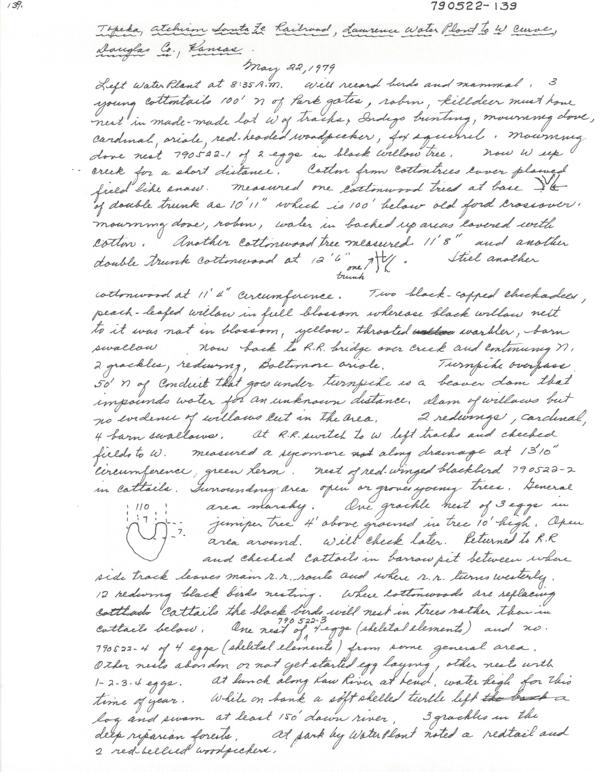 139.
790522-139
Topeka, Atchison Santa Fe Railroad, Lawrence Water Plant to W Curve,
Douglas Co., Kansas.
May 22, 1979
Left Water Plant at 8:35 A.M. Will record birds and mammal. 3
young cottontails 100' N of Park gates, robin, killdeer must have
nest in made-made lot W of tracks, Indigo bunting, mourning dove,
cardinal, oriole, red-headed woodpecker, fox squirrel. Mourning
dove nest 790522-1 of 2 eggs in black willow tree. Now W up
creek for a short distance. Cotton from cottontrees cover plowed
field like snow. Measured one cottonwood treed at base
of double trunk as 10'11" which is 100' below old ford crossover.
Mourning dove, robin, water in backed up areas covered with
cotton. Another cottonwood tree measured 11'8" and another
double trunk cottonwood at 12'6" one trunk Still another
cottonwood at 11'4" circumference. Two black-capped chickadees,
peach-leafed willow in full blossom whereas black willow next
to it was not in blossom, yellow-throated warbler, barn
swallow Now back to R.R. bridge over creek and continuing N.
2 grackles, redwing, Baltimore oriole. Turnpike overpass.
50' N of Conduit that goes under turnpike is a beaver dam that
impounds water for an unknown distance. Dam of willows but
no evidence of willows cut in the area. 2 redwings, cardinal,
4 barn swallows. At R.R. switch to W left tracks and checked
fields to W. Measured a sycomore along drainage at 13'10"
circumference, green heron. Nest of red winged blackbird 790522-2
in cattails. Surrounding area open or groves young trees. General
110
7
7.
area marshy. One grackle nest of 3 eggs in
juniper tree 4' above ground in tree 10' high. Open
area around. Will check later. Returned to R.R
and checked cattails in barrow pit between where
side track leaves main r.r. route and where r.r. turns westerly.
12 redwing black birds nesting. Where cottonwoods are replacing
cattails the black birds will nest in trees rather than in
cattails below. One nest 790522-3 of 4 eggs (skeletal elements) and no.
790522-4 of 4 eggs (skeletal elements) from same general area.
Other nests abandon or not yet started egg laying, other nests with
1-2-3-4 eggs. At lunch along Kaw River at bend, water high for this
time of year. While on bank a soft shelled turtle left a
log and swam at least 150' down river. 3 grackles in the
deep riparian forests. At park by Water Plant noted a redtail and
2 red-bellied woodpeckers.